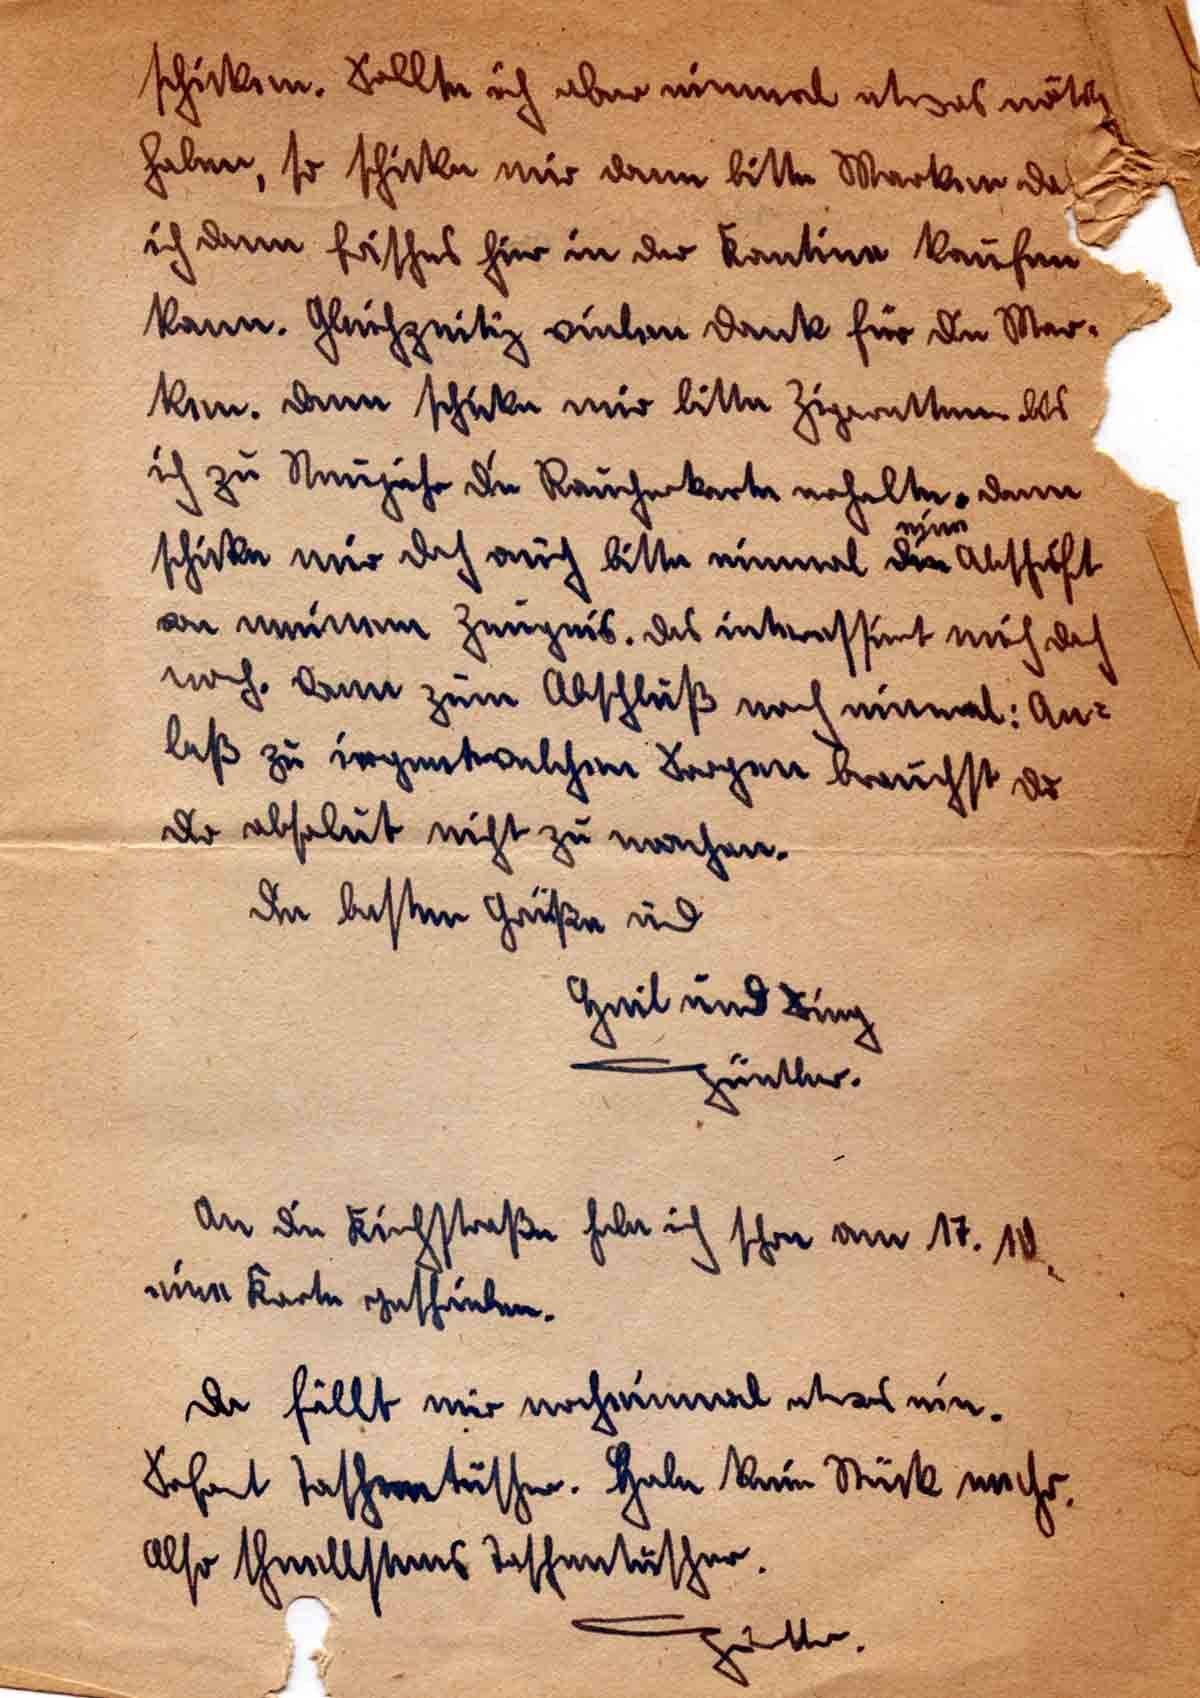 schicken. Sollte ich aber einmal etwas nötig
haben, so schicke mir dann bitte Marken da
ich dann frisches hier in der Kantine kaufen
kann. Gleichzeitig vielen Dank für die Mar-
ken. Dann schicke mir bitte Zigaretten bis
ich zu Neujahr die Raucherkarte erhalte. Dann
schicke mir doch auch bitte einmal die eine Abschrift
von meinem Zeugnis. Das interessiert mich doch
noch. Dann zum Abschluß noch einmal: An=
laß zu irgentwelchen Sorgen brauchst du
dir absolut nicht zu machen.
Die besten Grüße und
Heil und Sieg
Günther.
An die Kirchstraße habe ich schon am 17. 10.
eine Karte geschrieben.
Da fällt mir nocheinmal etwas ein.
Sofort Taschentücher. Habe kein Stück mehr.
Also schnellstens Taschentücher.
Günther.